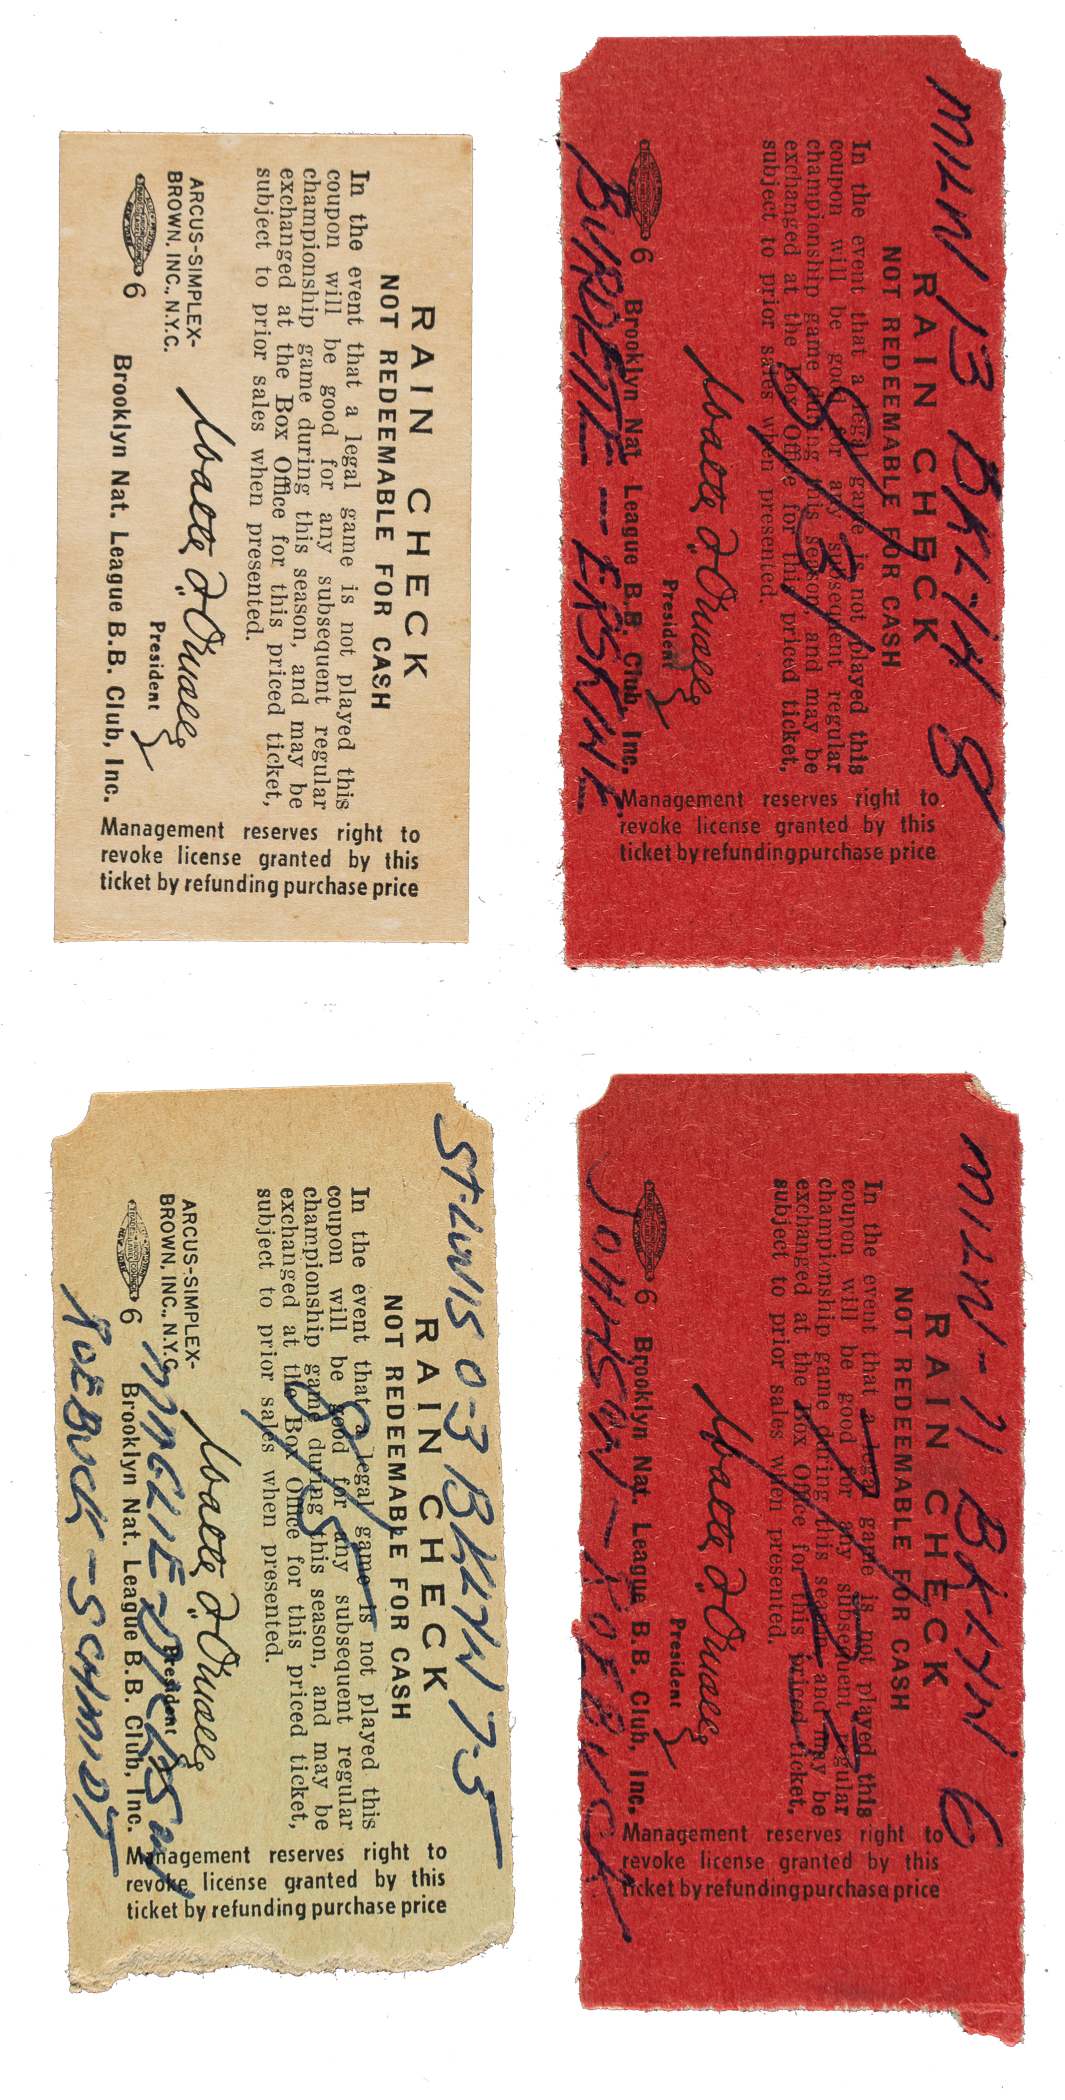 RAIN CHECK
NOT REDEEMABLE FOR CASH
In the event that a legal game is not played this
coupon will be good for any subsequent regular
championship game during this season, and may be
exchanged at the Box Office for this priced ticket,
subject to prior sales when presented.
ARCUS-SIMPLEX-
BROWN, INC., N.Y.C.
Walter F. O'Malley
President
6
Brooklyn Nat. League B.B. Club, Inc.
Management reserves right to
revoke license granted by this
ticket by refunding purchase price
MILW 13 BKLYN 8
RAIN CHECK
NOT REDEEMABLE FOR CASH
In the event that a legal game is not played this
coupon will be good for any subsequent regular
championship game during this season, and may be
exchanged at the Box Office for this priced ticket,
subject to prior sales when presented.
Walter F. O'Malley
President
6
Brooklyn Nat. League B.B. Club, Inc.
BURDETTE - ERSKINE
Management reserves right to
revoke license granted by this
ticket by refunding purchase price
ST. LOUIS 0-3 BKLYN 7-5
RAIN CHECK
NOT REDEEMABLE FOR CASH
In the event that a legal game is not played this
coupon will be good for any subsequent regular
championship game during this season, and may be
exchanged at the Box Office for this priced ticket,
subject to prior sales when presented.
ARCUS-SIMPLEX-
BROWN, INC., N.Y.C.
Walter F. O'Malley
President
6
MAGLIE - DICKSON
Brooklyn Nat. League B.B. Club, Inc.
ROEBUCK - SCHMIDT
Management reserves right to
revoke license granted by this
ticket by refunding purchase price
MILW - 7 BKLYN 6
RAIN CHECK
NOT REDEEMABLE FOR CASH
In the event that a legal game is not played this
coupon will be good for any subsequent regular
championship game during this season, and may be
exchanged at the Box Office for this priced ticket,
subject to prior sales when presented.
Walter F. O'Malley
President
6
Brooklyn Nat. League B.B. Club, Inc.
JOHNSON - ROEBUCK
Management reserves right to
revoke license granted by this
ticket by refunding purchase price